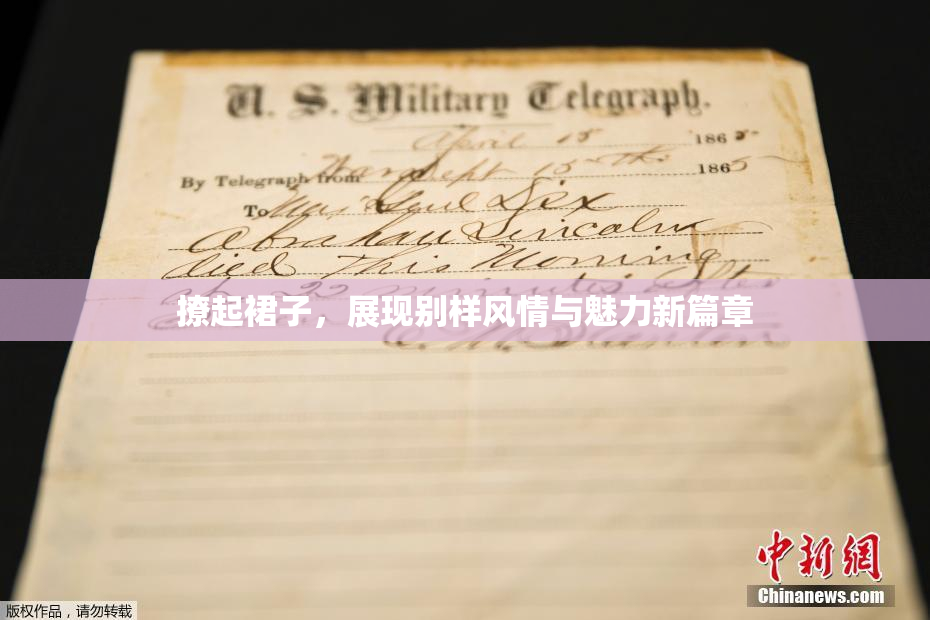 U. S. Military Telegraph.
April 15 1865
By Telegraph from War Dept 15th 1865
To Maj Genl Dix
Abraham Lincoln
died This Morning
at 22 minutes after
撩起裙子，展现别样风情与魅力新篇章
E. M. Stanton
中新网
Chinanews.com
版权作品，请勿转载